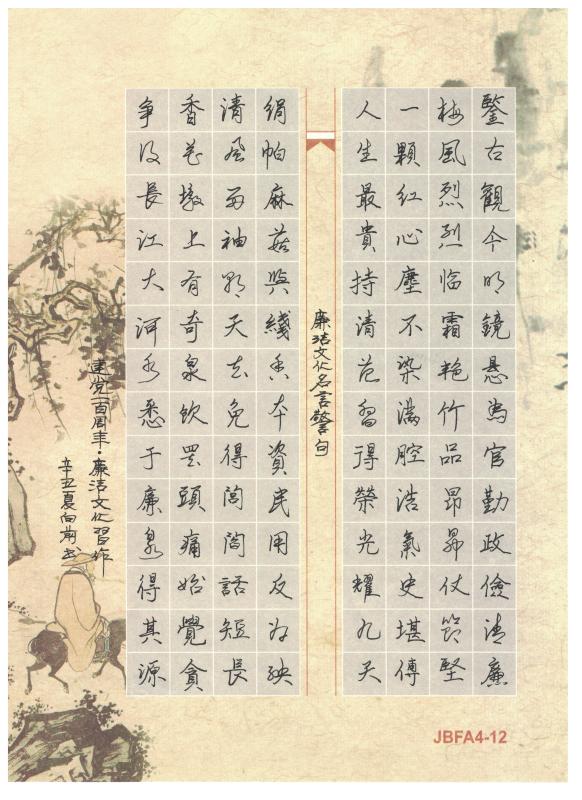 鑒古觀今明鏡懸為官勤政儉清廉
梅風烈烈临霜艳竹品昂昂仗節堅
一顆红心塵不染滿腔浩氣史堪傳
人生最貴持清范習得榮光耀九天
廉洁文化名言警句
絹帕麻菇與綫香本資民用反为殃
清風两袖朝天去免得閭閻話短長
香花墩上有奇泉飲罢頭痛始覺貪
争長江大河水悉于廉泉得其源
建党一百周年·廉洁文化習作
辛丑夏向前书
JBFA4-12